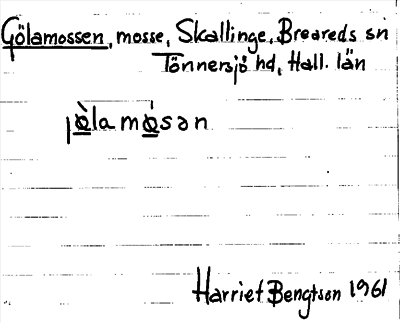 Gölamossen, mosse, Skallinge, Breareds sn
Tönnersjö hd, Hall. län
jø̀lamøsən
Harriet Bengtson 1961